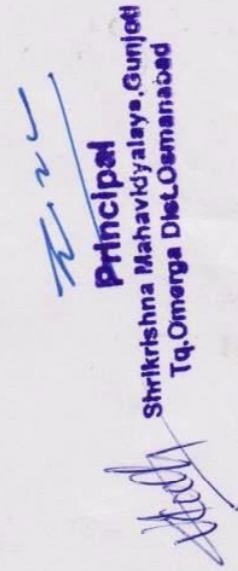 Principal
Shrikrishna Mahavidyalaya,Gunjoti
Tq.Omerga Dist.Osmanabad